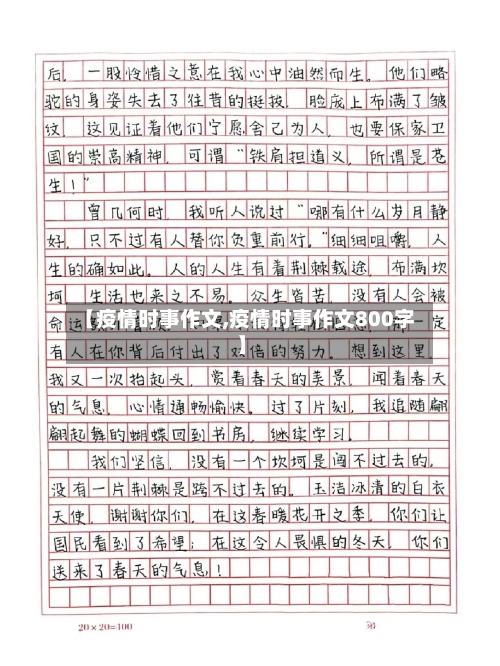 后，一股怜惜之意在我心中油然而生。他们略
驼的身姿失去了往昔的挺拔，脸庞上布满了皱
纹，这见证着他们宁愿舍己为人，也要保家卫
国的崇高精神，可谓“铁肩担道义，所谓是苍
生！”
曾几何时，我听人说过“哪有什么岁月静
好，只不过有人替你负重前行。”细细咀嚼，人
生的确如此。人的人生有着荆棘载途，布满坎
坷，生活也来之不易。众生皆苦，没有人会被
【疫情时事作文,疫情时事作文800字
】
命运
定
有人在你背后付出了双倍的努力。想到这里，
我又一次抬起头，赏着春天的美景，闻着春天
的气息，心情通畅愉快。过了片刻，我追随翩
翩起舞的蝴蝶回到书房，继续学习。
我们坚信，没有一个坎坷是闯不过去的，
没有一片荆棘是跨不过去的。玉洁冰清的白衣
天使，谢谢你们，在这春暖花开之季，你们让
国民看到了希望；在这令人畏惧的冬天，你们
送来了春天的气息！
20×20=400
第